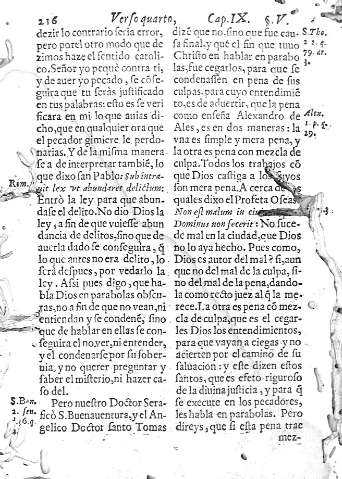 216 Verso quarto, Cap. IX. §. V.
dezir lo contrario seria error,
pero por el otro modo que de
zimos haze el sentido catoli-
co. Señor yo pequè contra ti,
y de auer yo pecado, se cõse-
guira que tu seràs justificado
en tus palabras: esto es se veri
ficara en mi lo que auias di-
cho, que en qualquier ora que
el pecador gimiere le perdo-
narias. Y de la misma manera
se a de interpretar tambiẽ, lo
que dixo san Pablo: Sub intra-
uit lex vt abundaret delictum:
Entrò la ley para que abun-
dase el delito. No dio Dios la
ley, a fin de que vuiesse abun
dancia de delitos, sino que de
auerla dado se conseguira, q̃
lo que antes no era delito, lo
serà despues, por vedarlo la
ley. Assi pues digo, que ha-
bla Dios en parabolas obscu-
ras, no a fin de que no vean, ni
entiendan y se condenẽ, sino
que de hablar en ellas se con-
seguira el no ver, ni entender,
y el condenarse por su sober-
uia, y no querer preguntar y
saber el misterio, ni hazer ca-
so del.
Pero nuestro Doctor Sera-
fico S. Buenauentura, y el An-
gelico Doctor santo Tomas
Rom.
S. Bon.
2. sen.
dizẽ que no, sino que fue cau-
sa final, y quẽ el fin que tuuo
Christo en hablar en parabo
las, fue cegarlos, para que se
condenassen en pena de sus
culpas. para cuyo entendimiẽ
to, es de aduertir, que la pena
como enseña Alexandro de
Ales, es en dos maneras: la
vna es simple y mera pena, y
la otra es pena con mezcla de
culpa. Todos los trabajos cõ
que Dios castiga a los suyos
son mera pena. A cerca de los
quales dixo el Profeta Oseas.
Non est malum in ciuitate quod
Dominus non fecerit: No suce-
de mal en la ciudad, que Dios
no lo aya hecho. Pues como,
Dios es autor del mal? si, aun
que no del mal de la culpa, si-
no del mal de la pena, dando-
la como recto juez al q̃ la me
rece. La otra es pena cõ mez
cla de culpa, que es el cegar-
les Dios los entendimientos,
para que vayan a ciegas y no
acierten por el camino de su
saluacion: y este dizen estos
santos, que es efeto riguroso
de la diuina justicia, y para q̃
se execute en los pecadores,
les habla en parabolas. Pero
direys, que si esta pena trae
mez-
S. Tho.
2. 2. q.
79. ar.
Alex.